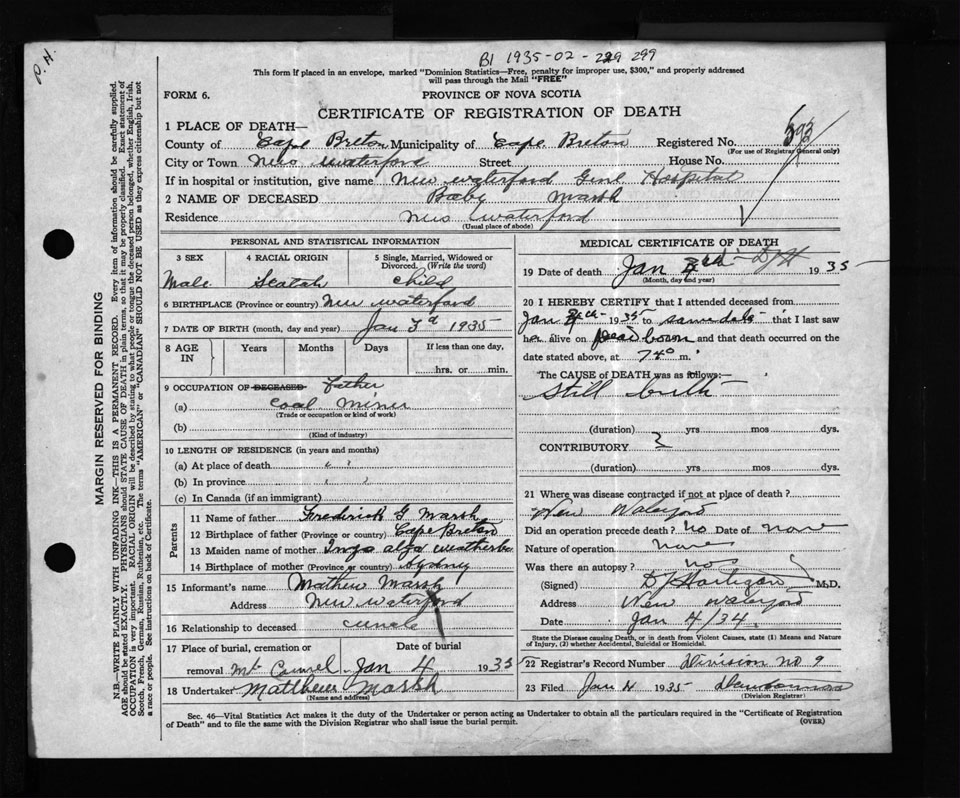 P. H.
B1 1935-02-299 299
This form if placed in an envelope, marked "Dominion Statistics—Free, penalty for improper use, $300," and properly addressed
will pass through the Mail "FREE"
FORM 6.
PROVINCE OF NOVA SCOTIA
CERTIFICATE OF REGISTRATION OF DEATH
1 PLACE OF DEATH—
County of Cape Breton Municipality of Cape Breton Registered No.
(For use of Registrar General only)
City or Town New Waterford Street House No.
If in hospital or institution, give name New Waterford Genl Hospital
2 NAME OF DECEASED Baby Marsh
Residence New Waterford
(Usual place of abode)
PERSONAL AND STATISTICAL INFORMATION
3 SEX 4 RACIAL ORIGIN 5 Single, Married, Widowed or
Divorced. (Write the word)
Male Scotch Child
6 BIRTHPLACE (Province or country) New Waterford
7 DATE OF BIRTH (month, day and year) Jan 3d 1935
8 AGE IN Years Months Days If less than one day,
hrs. or min.
9 OCCUPATION OF DECEASED Father
(a) Coal Miner
(Trade or occupation or kind of work)
(b)
(Kind of industry)
10 LENGTH OF RESIDENCE (in years and months)
(a) At place of death " ?
(b) In province " ?
(c) In Canada (if an immigrant)
Parents
11 Name of father Frederick G Marsh
12 Birthplace of father (Province or country) Cape Breton
13 Maiden name of mother
14 Birthplace of mother (Province or country) Sydney
15 Informant's name Mathew Marsh
Address New Waterford
16 Relationship to deceased uncle
17 Place of burial, cremation or Date of burial
removal Mt Carmel Jan 4 1935
18 Undertaker Matthew Marsh
(Name and address)
MEDICAL CERTIFICATE OF DEATH
19 Date of death Jan 1935
(Month, day and year)
20 I HEREBY CERTIFY that I attended deceased from
Jan 1935 to same date that I last saw
h alive on born and that death occurred on the
date stated above, at 740 m.
The CAUSE OF DEATH was as follows:
Still birth
(duration) yrs mos dys.
CONTRIBUTORY
(duration) yrs mos dys.
21 Where was disease contracted if not at place of death ?
New Waterford
Did an operation precede death ? no Date of none
Nature of operation none
Was there an autopsy ? no
(Signed) M.D.
Address New Waterford
Date Jan 4/34.
State the Disease causing Death, or in death from Violent Causes, state (1) Means and Nature
of Injury, (2) whether Accidental, Suicidal or Homicidal.
22 Registrar's Record Number Division no 9
23 Filed Jan 4 1935
(Division Registrar)
Sec. 46—Vital Statistics Act makes it the duty of the Undertaker or person acting as Undertaker to obtain all the particulars required in the "Certificate of Registration
of Death" and to file the same with the Division Registrar who shall issue the burial permit.
(OVER)
MARGIN RESERVED FOR BINDING
N.B.—WRITE PLAINLY WITH UNFADING INK—THIS IS A PERMANENT RECORD. Every item of information should be carefully supplied.
AGE should be stated EXACTLY. PHYSICIANS should STATE CAUSE OF DEATH in plain terms, so that it may be properly classified. Exact statement of
OCCUPATION is very important. RACIAL ORIGIN will be described by stating to what people or tongue the deceased person belonged, whether English, Irish,
Scotch, French, German, Russian, Ruthenian, etc. The terms "AMERICAN" or "CANADIAN" SHOULD NOT BE USED as they express citizenship but not
a race or people. See instructions on back of Certificate.